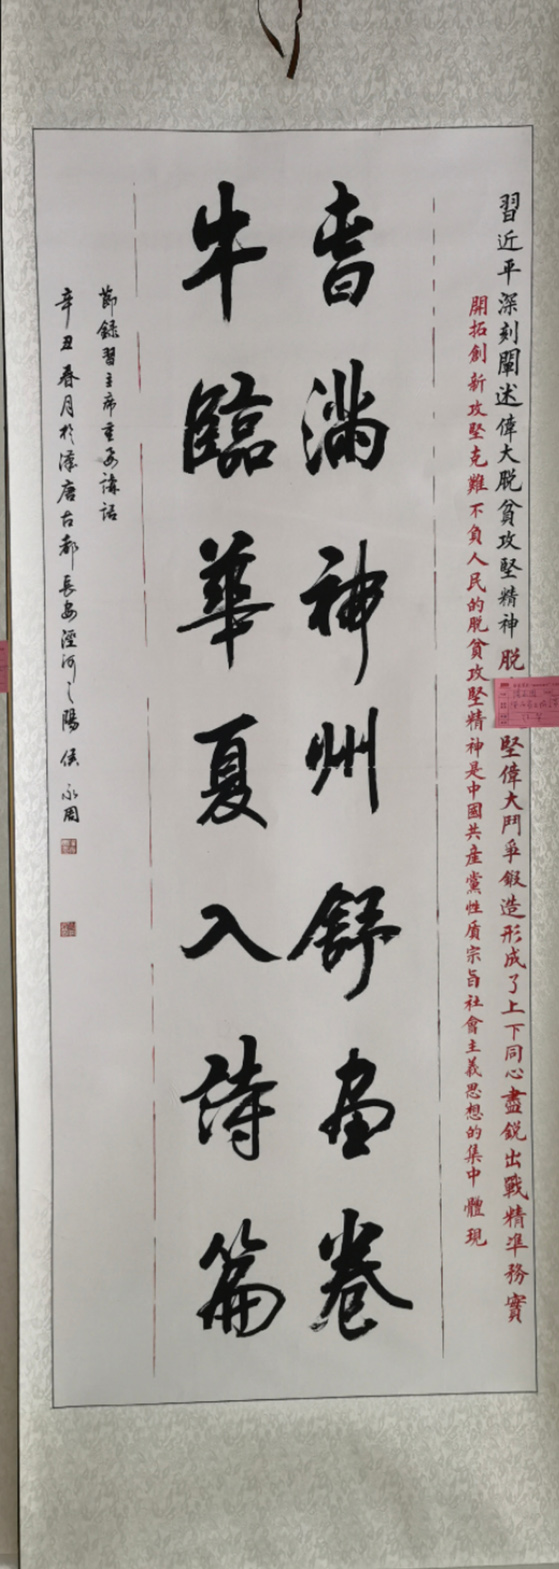 習近平深刻闡述偉大脫貧攻堅精神脫堅偉大鬥爭鍛造形成了上下同心盡銳出戰精準務實
開拓創新攻堅克難不負人民的脫貧攻堅精神是中國共產黨性質宗旨社會主義思想的集中體現
旾滿神州舒畫卷
牛臨華夏入詩篇
節錄習主席重要講話
辛丑春月於漢唐古都長安涇河之陽侯永周